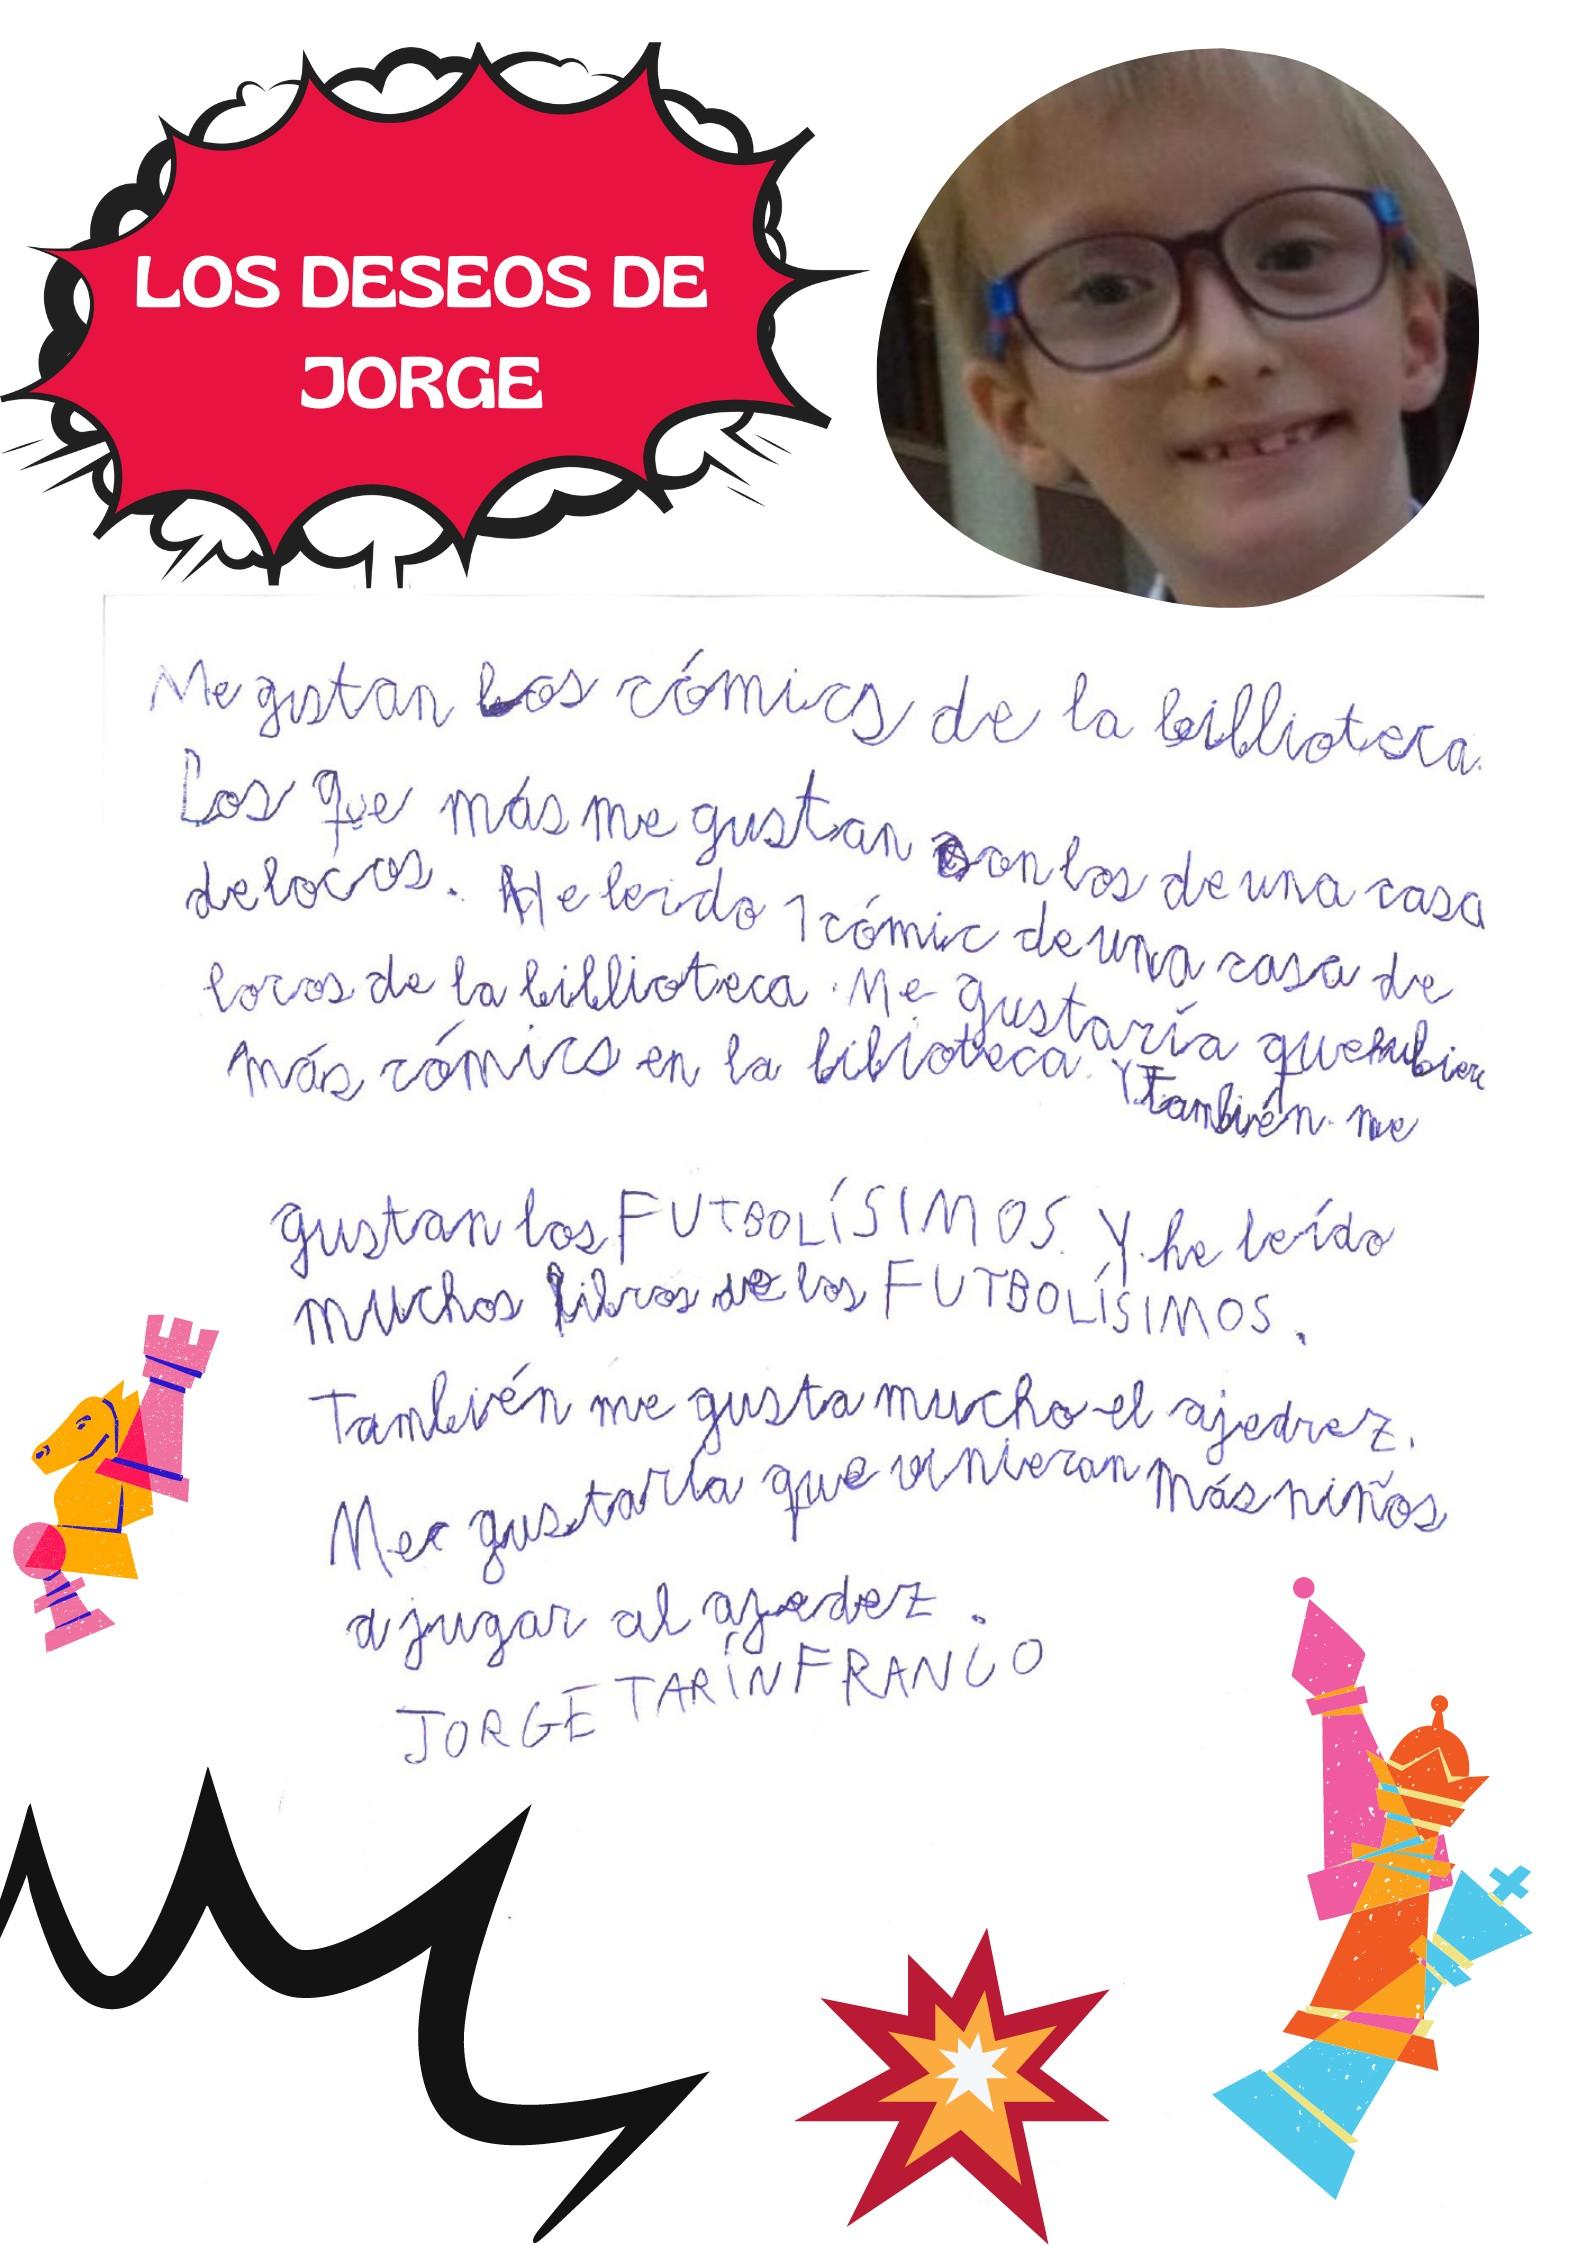 LOS DESEOS DE
JORGE
Me gustan los cómics de la biblioteca.
Los que más me gustan son los de una casa
de locos. He leido 1 cómic de una casa de
locos de la biblioteca. Me gustaría que hubier
más cómics en la biblioteca. Y También me
gustan los FUTBOLÍSIMOS. Y he leído
muchos libros de los FUTBOLÍSIMOS.
También me gusta mucho el ajedrez.
Me gustaría que vinieran más niños
a jugar al ajedez.
JORGE TARÍN FRANCO